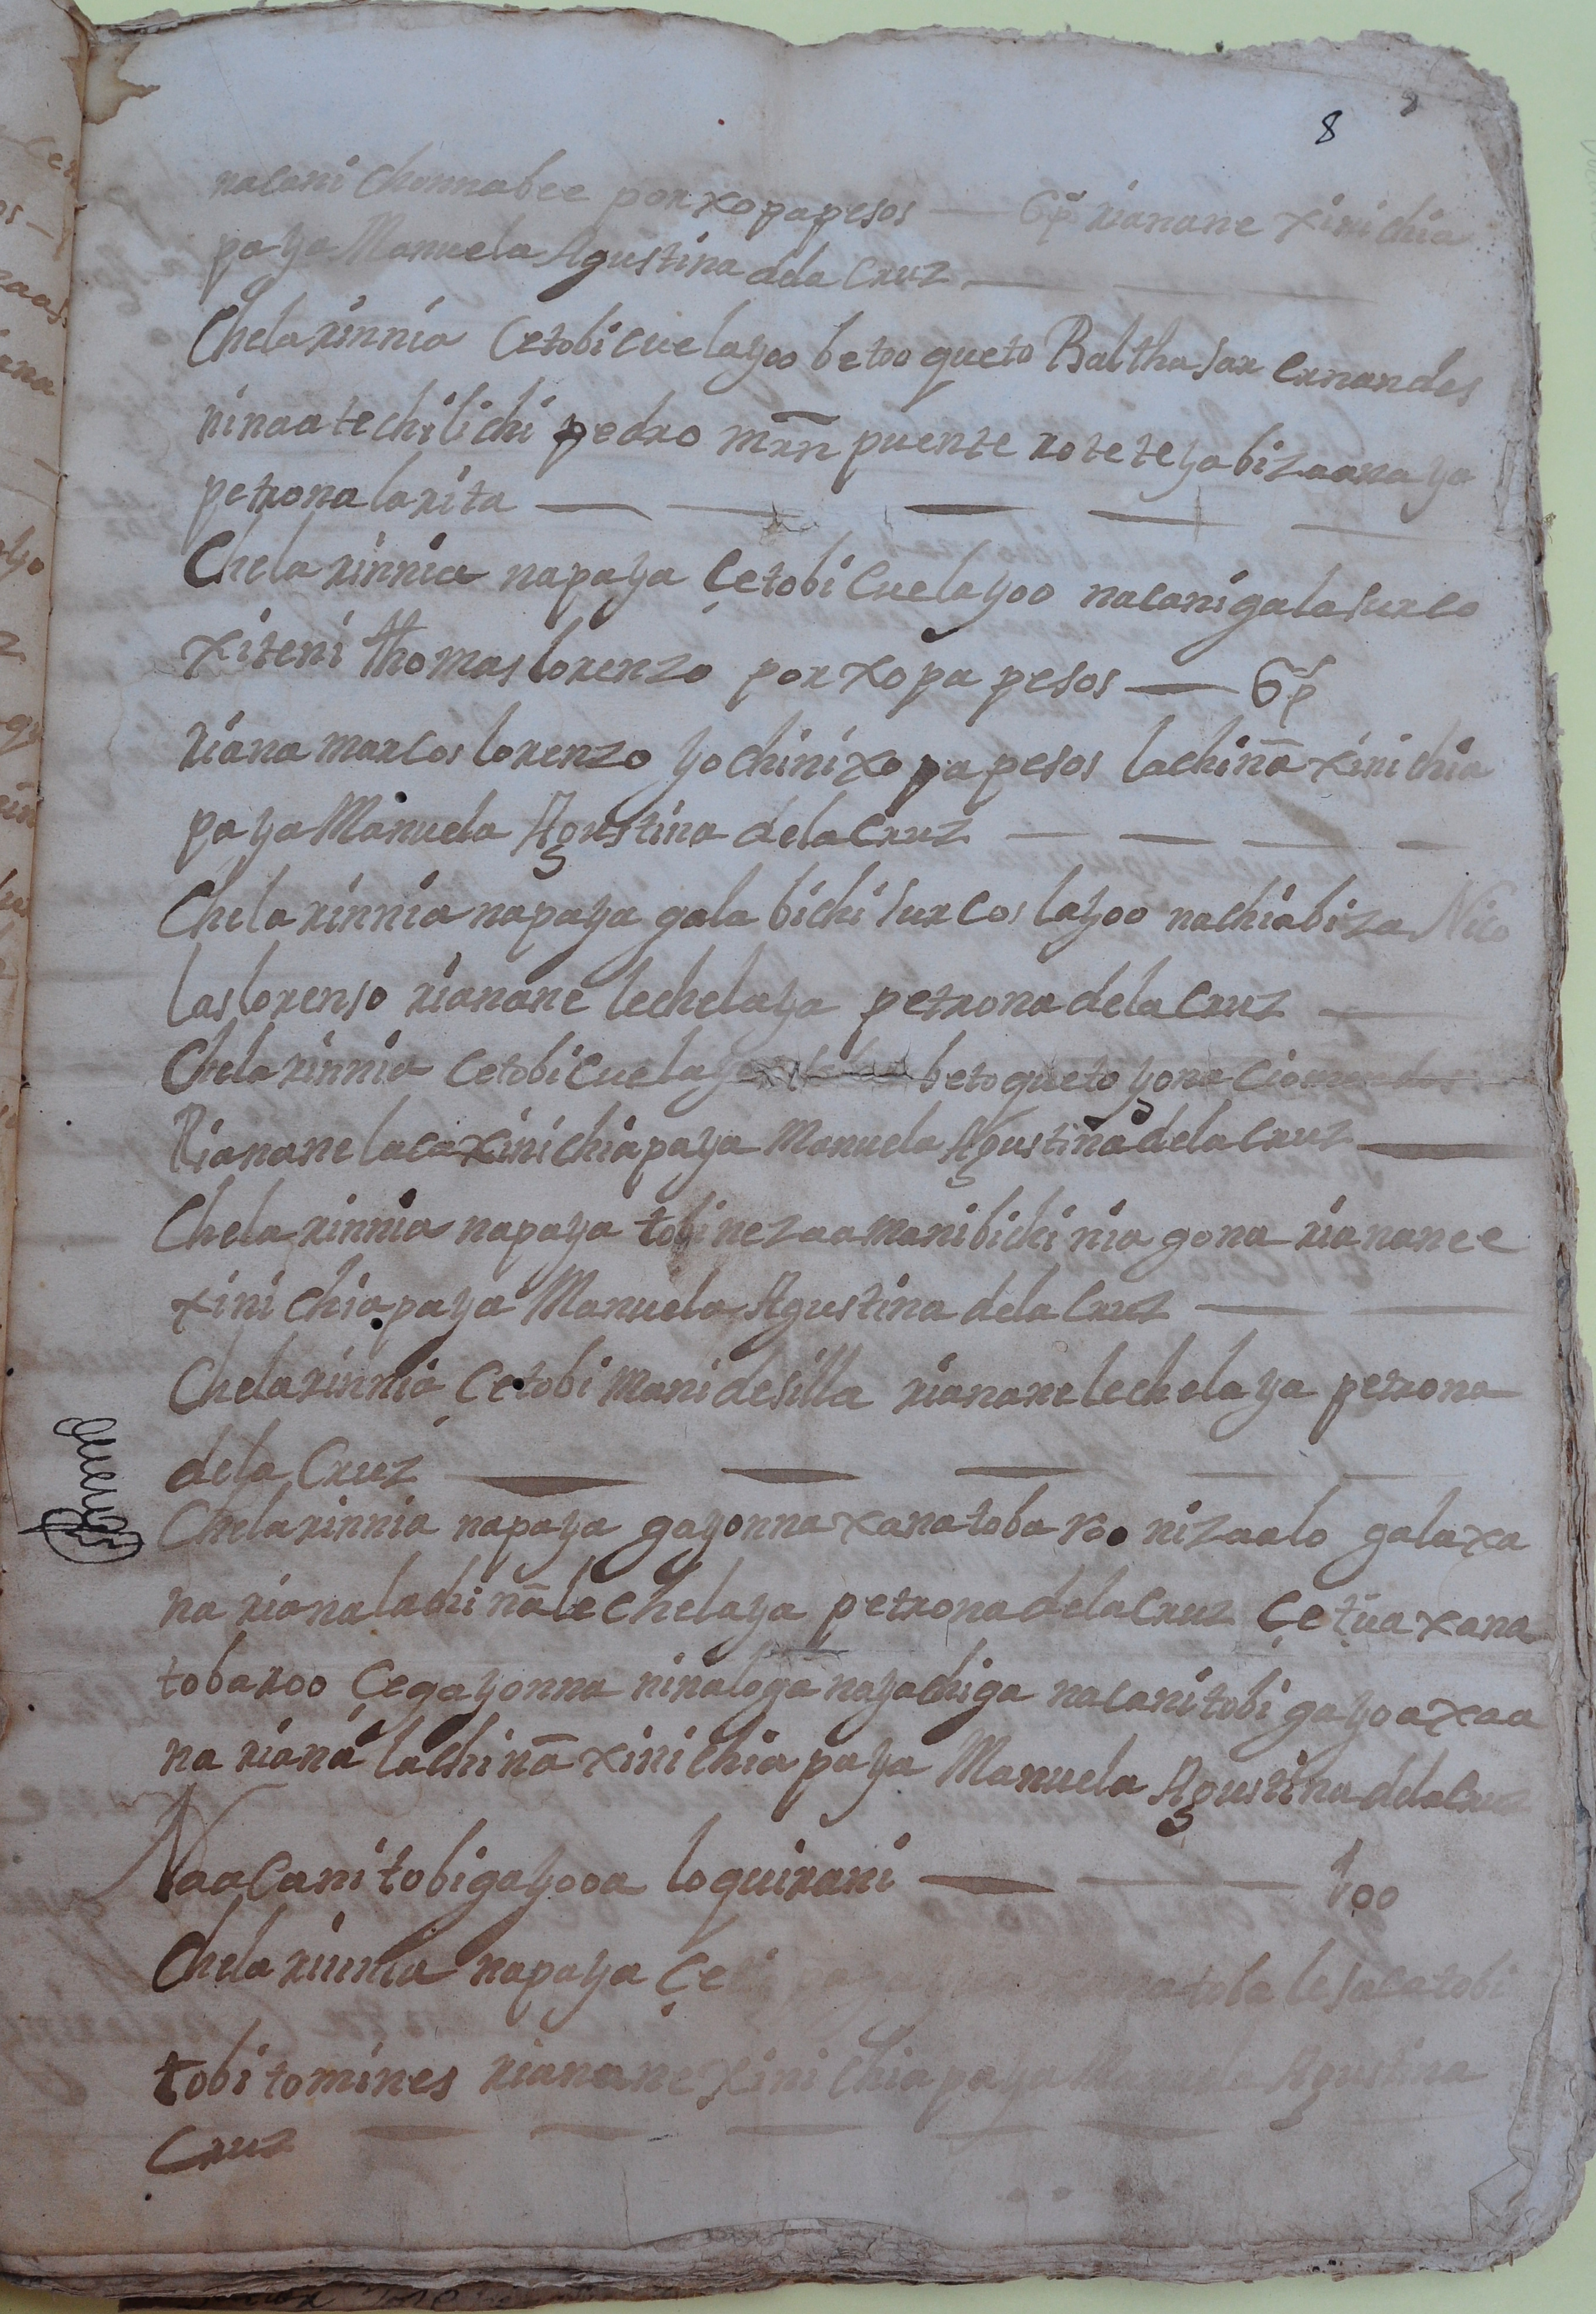 8
nacani chonnabee por xopa pesos — 6p̃ rianane xini chia
paya Manuela Agustina dela Cruz —
Chela rinnia Cetobi cuelayoo betoo queto Balthasar ernandes
ninaa te chilichi pedro mr̃n puente rotete yabizaanaya
petrona larita —
Chela rinnia napaya çetobi Cuelayoo nacani gala surco
xiteni thomas lorenzo por xopa pesos — 6p̃
riana marcos lorenzo yochini xopa pesos lachiña xini chia
paya Manuela Agustina dela Cruz —
Chela rinnia napaya gala bichi surcos layoo nachiabiza Nico
las lorenso rianane lechelaya petrona dela Cruz —
Chela rinnia cetobi cuela betoqueto
Rianane laca xini chiapaya Manuela Agustina dela Cruz —
Chela rinnia napaya tobi nezaa mani bichi nia gona riananee
xini chiapaya Manuela Agustina dela Cruz —
Chela rinnia çetobi mani desilla rianane lechelaya petrona
dela Cruz —
Chela rinnia napaya gayonna xana toba roo nizaalo galaxa
na riana lachiña lechelaya petrona dela Cruz çetua xana
toba roo çegayonna ninaloga nayachiga nacani tobi gayoa xaa
na riana lachiña xini chia paya Manuela Agustina dela Cruz
Naacani tobigayooa loquirani — 100
Chela rinnia napaya toba lesaca tobi
tobi tomines rianane xini chia paya Manuela Agustina
Cruz —